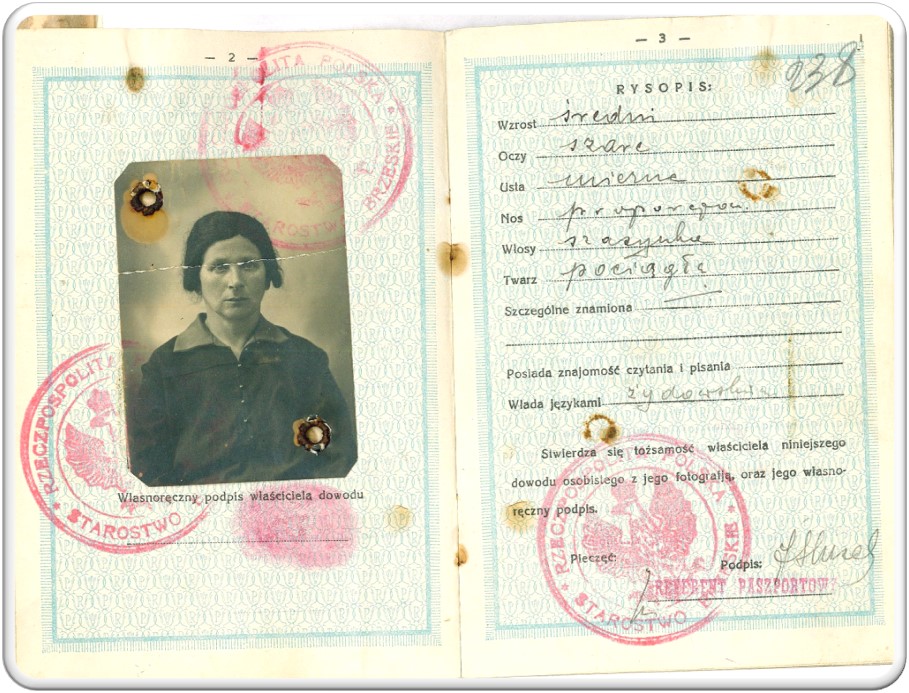 — 2 —
RZECZPOSPOLITA POLSKA
STAROSTWO BRZESKIE
RZECZPOSPOLITA
STAROSTWO
Własnoręczny podpis właściciela dowodu
— 3 —
238
RYSOPIS:
Wzrost średni
Oczy szare
Usta mierne
Nos
Włosy szatynka
Twarz pociągła
Szczególne znamiona —
Posiada znajomość czytania i pisania
Włada językami żydowskim
Stwierdza się tożsamość właściciela niniejszego
dowodu osobistego z jego fotografją, oraz jego własno-
ręczny podpis.
Pieczęć:
Podpis:
REFERENT PASZPORTOWY
RZECZPOSPOLITA POLSKA
STAROSTWO BRZESKIE